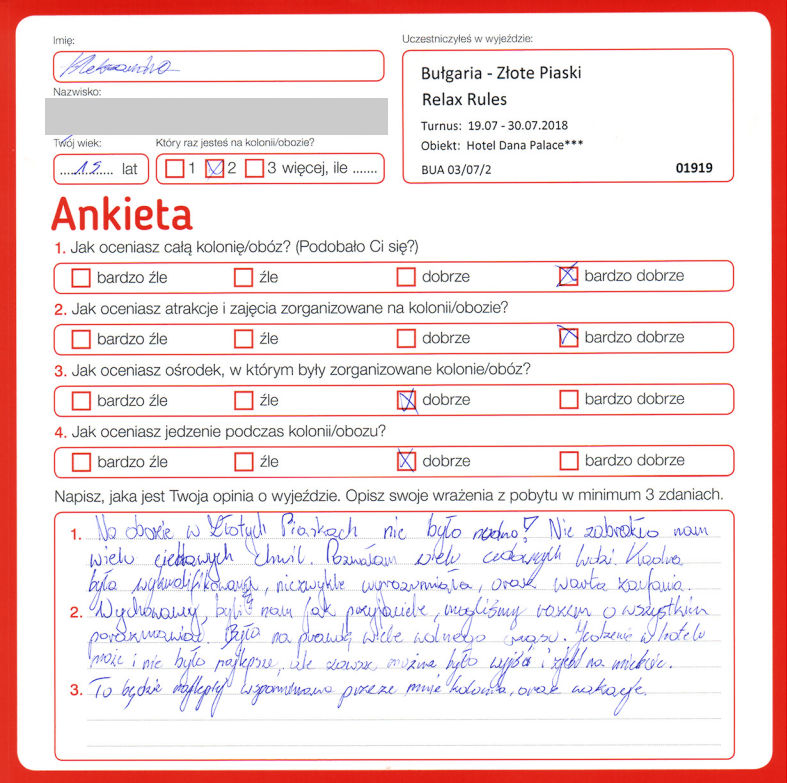 Imię:
Aleksandra
Nazwisko:
Twój wiek:
15 lat
Który raz jesteś na kolonii/obozie?
1 2 3 więcej, ile .......
Uczestniczyłeś w wyjeździe:
Bułgaria - Złote Piaski
Relax Rules
Turnus: 19.07 - 30.07.2018
Obiekt: Hotel Dana Palace***
BUA 03/07/2 01919
Ankieta
1. Jak oceniasz całą kolonię/obóz? (Podobało Ci się?)
bardzo źle źle dobrze bardzo dobrze
2. Jak oceniasz atrakcje i zajęcia zorganizowane na kolonii/obozie?
bardzo źle źle dobrze bardzo dobrze
3. Jak oceniasz ośrodek, w którym były zorganizowane kolonie/obóz?
bardzo źle źle dobrze bardzo dobrze
4. Jak oceniasz jedzenie podczas kolonii/obozu?
bardzo źle źle dobrze bardzo dobrze
Napisz, jaka jest Twoja opinia o wyjeździe. Opisz swoje wrażenia z pobytu w minimum 3 zdaniach.
1. Na obozie w Złotych Piaskach nie było nudno! Nie zabrakło nam
wielu ciekawych chwil. Poznałam wielu cudownych ludzi. Kadra
była wykwalifikowana, niezwykle wyrozumiała, oraz warta zaufania.
2. Wychowawcy byli nam jak przyjaciele, mogliśmy razem o wszystkim
porozmawiać. Było na prawdę wiele wolnego czasu. Jedzenie w hotelu
może i nie było najlepsze, ale zawsze można było wyjść i zjeść na mieście.
3. To będzie najlepiej wspominana przeze mnie kolonia, oraz wakacje.